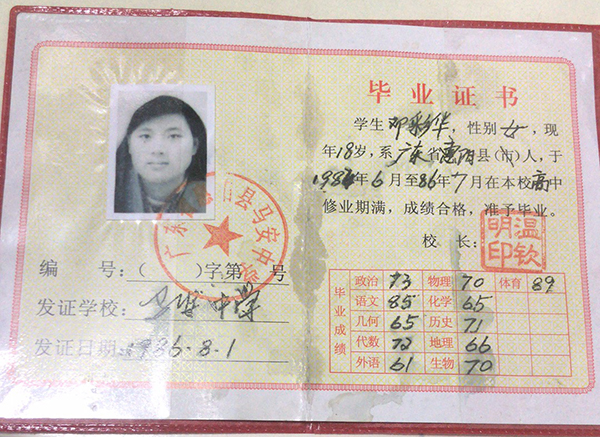 广东省惠阳县马安中学
编 号：( )字第 号
发证学校：马安中学
发证日期：1986.8.1
毕业证书
学生邓彩华，性别女，现
年18岁，系广东省惠阳县(市)人，于
198 年6月至86年7月在本校高中
修业期满，成绩合格，准予毕业。
校 长：
温钦明印
毕业成绩
政治 73 物理 70 体育 89
语文 85 化学 65
几何 65 历史 71
代数 72 地理 66
外语 61 生物 70